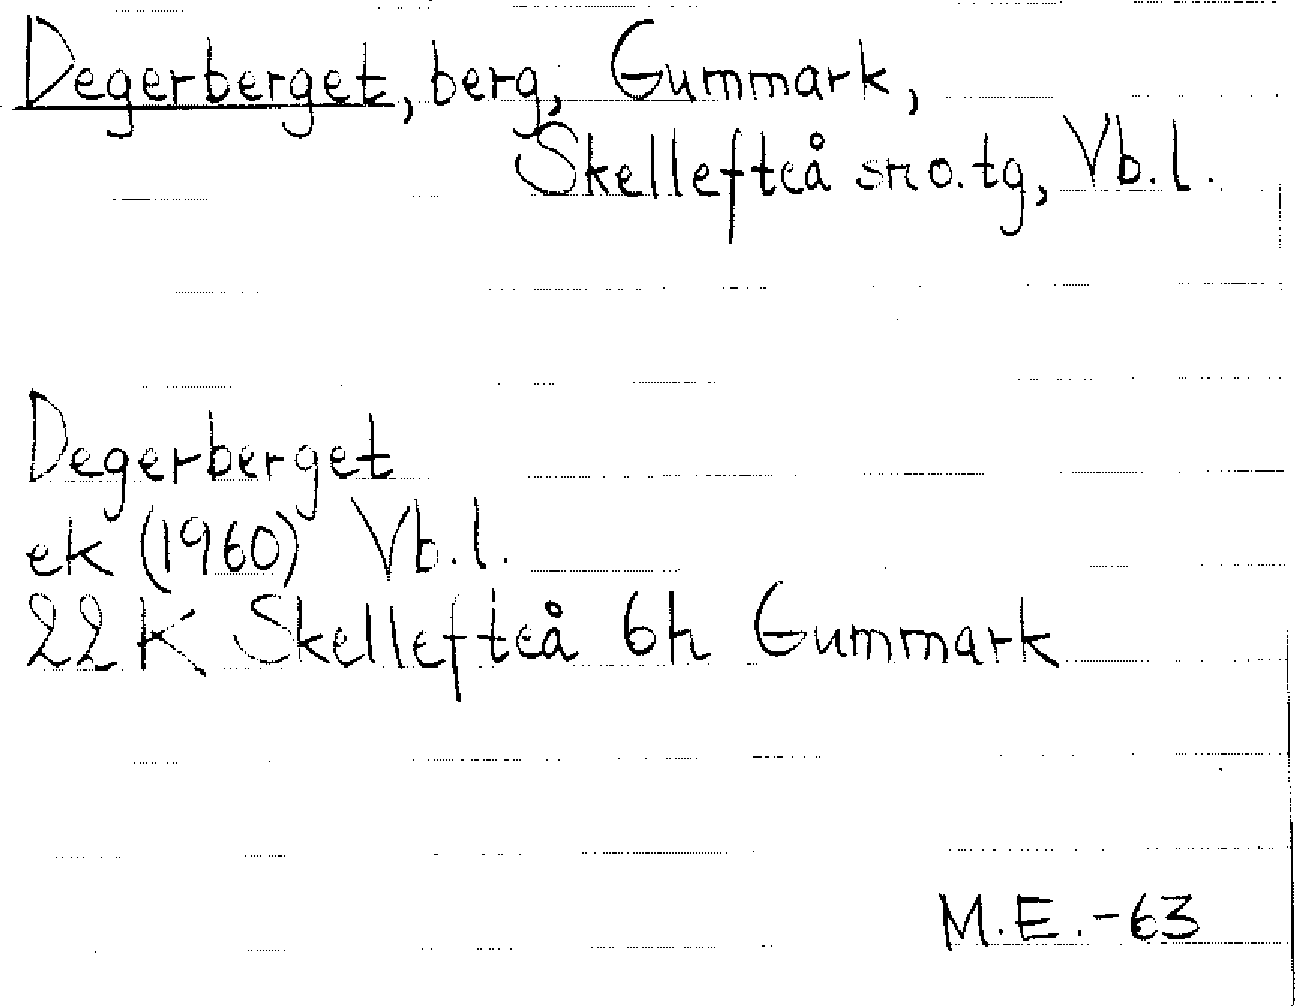 Degerberget, berg, Gummark,
Skellefteå sn o. tg, Vb. l.
Degerberget
ek (1960) Vb. l.
22 K Skellefteå 6h Gummark
M.E.-63